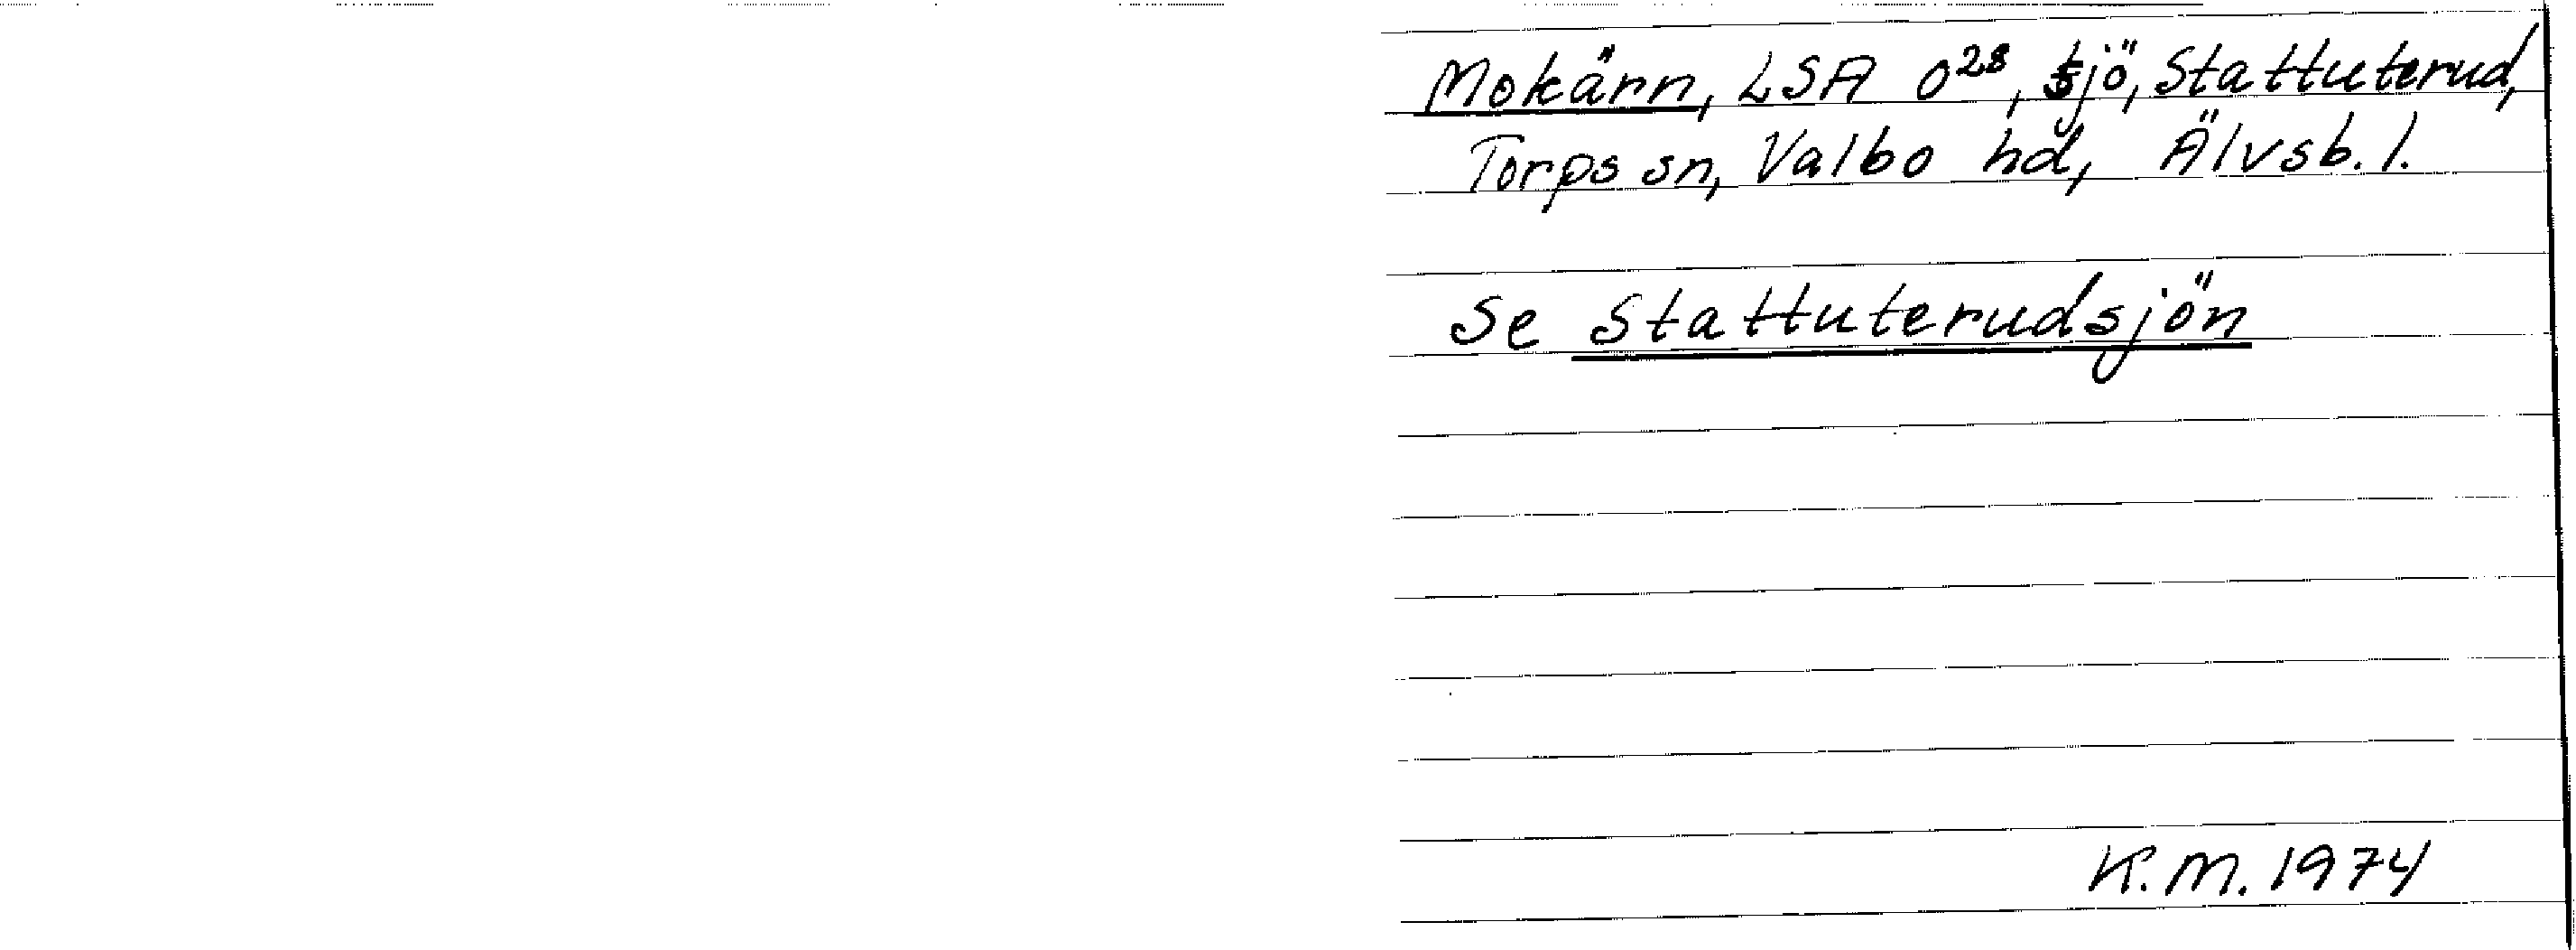 Mokärn, LSA O28, sjö, Stattuterud,
Torps sn, Valbo hd, Älvsb. l.
Se Stattuterudsjön
K.M. 1974